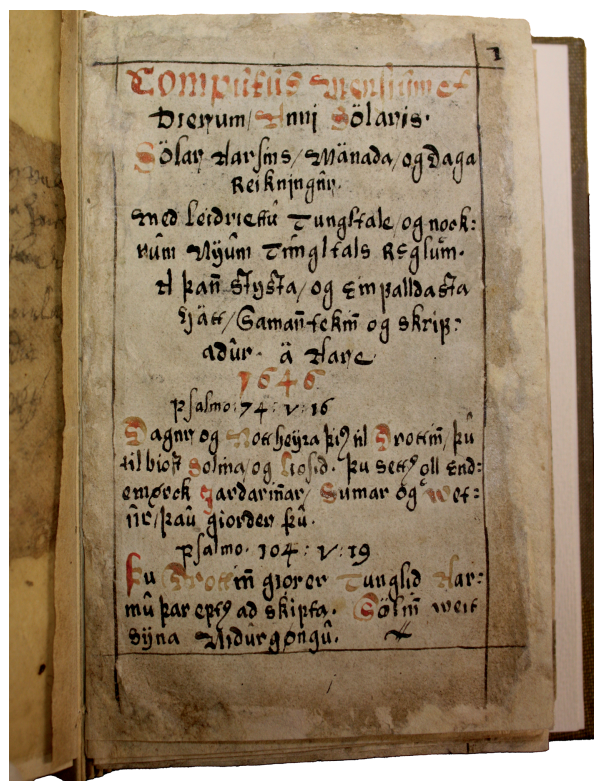 1
Computus Mensium et
Dierum / Anni Sölaris.
Sölar Aarsins / Mänada / og Daga
Reikningur.
Med Leidriettû Tungltale / og nock:
rûm Nÿûm Tûngltals Reglum.
A þañ Stÿsta / og Einfalldasta
Hätt / Samañtekiñ og skrif:
adûr. ä Aare
1646.
Psalmo: 74: v: 16
Dagur og Nott heÿra þier til Drottiñ / þû
til biost Solina / og Liosid. þu setter øll End:
emørck Jardariñar / Sumar og Vet:
ûr / þaû giorder þû.
Psalmo. 104: V: 19
Þu Drottiñ giorer Tunglid Aar:
mû þar epter ad skipta. Söliñ veit
sÿna Nidûrgøngû.